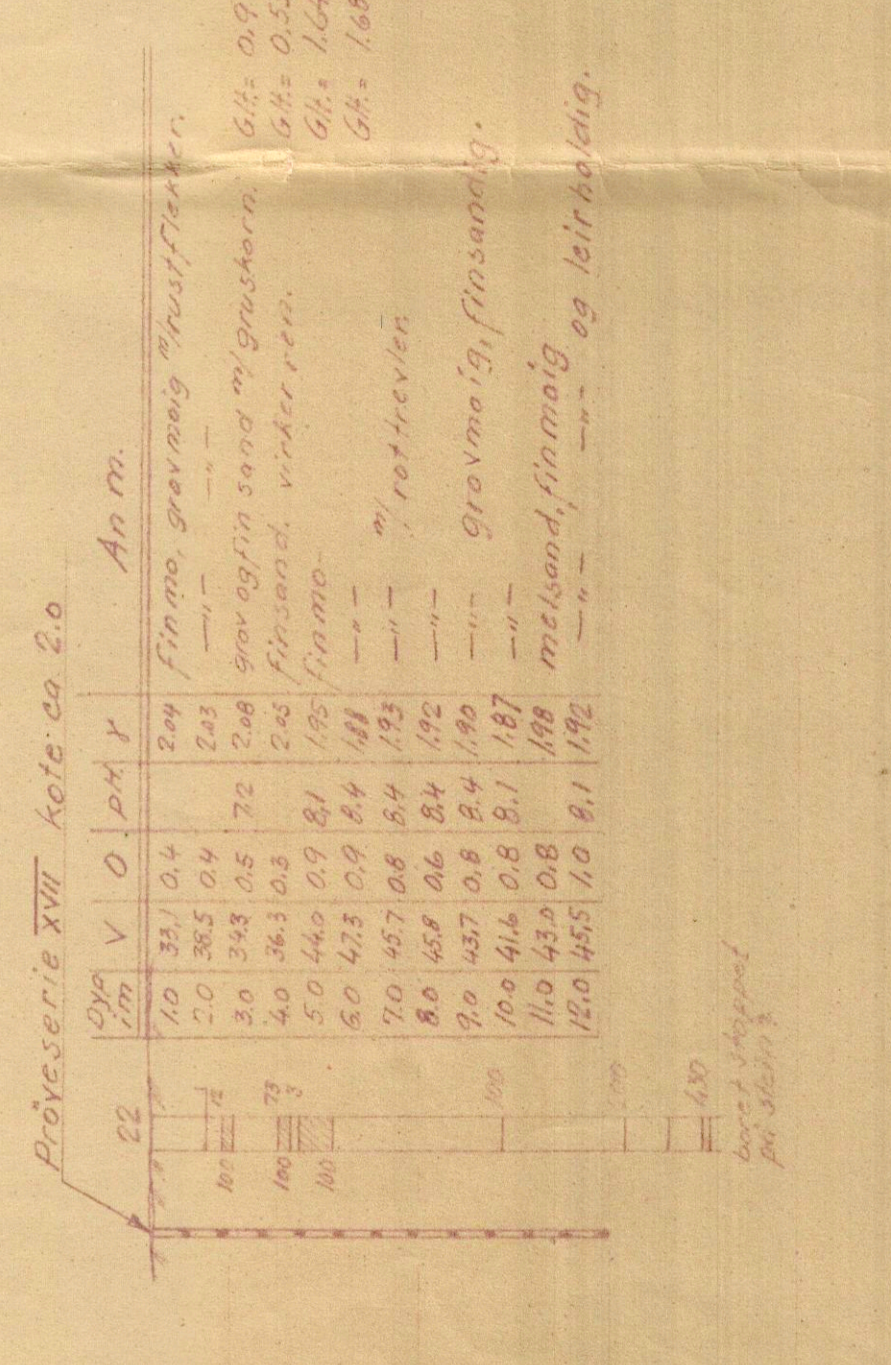 Pröveserie XVII kote ca. 2.0
22
Dyp im V O pH. γ Anm.
1.0 33,1 0.4 2.04 finmo, grovmoig m/rustflekker.
2.0 38.5 0.4 2.03 —"— —"—
3.0 34.3 0.5 7.2 2.08 grov og fin sand m/gruskorn. Glt.= 0.9
4.0 36.3 0.3 2.05 finsand. virker ren. Glt.= 0.5
5.0 44.0 0.9 8,1 1.95 finmo Glt.= 1.6
6.0 47.3 0.9 8.4 1.88 —"— Glt.= 1.68
7.0 45.7 0.8 8.4 1.93 —"— m/rottrevler.
8.0 45.8 0.6 8.4 1.92 —"—
9.0 43.7 0.8 8.4 1.90 —"— grovmoig, finsandig.
10.0 41.6 0.8 8.1 1.87 —"—
11.0 43.0 0.8 1.98 melsand, finmoig
12.0 45.5 1.0 8.1 1.92 —"— , —"— og leirholdig.
100 12
100 73
3
100
100
100
430
boret stoppet
på stein?